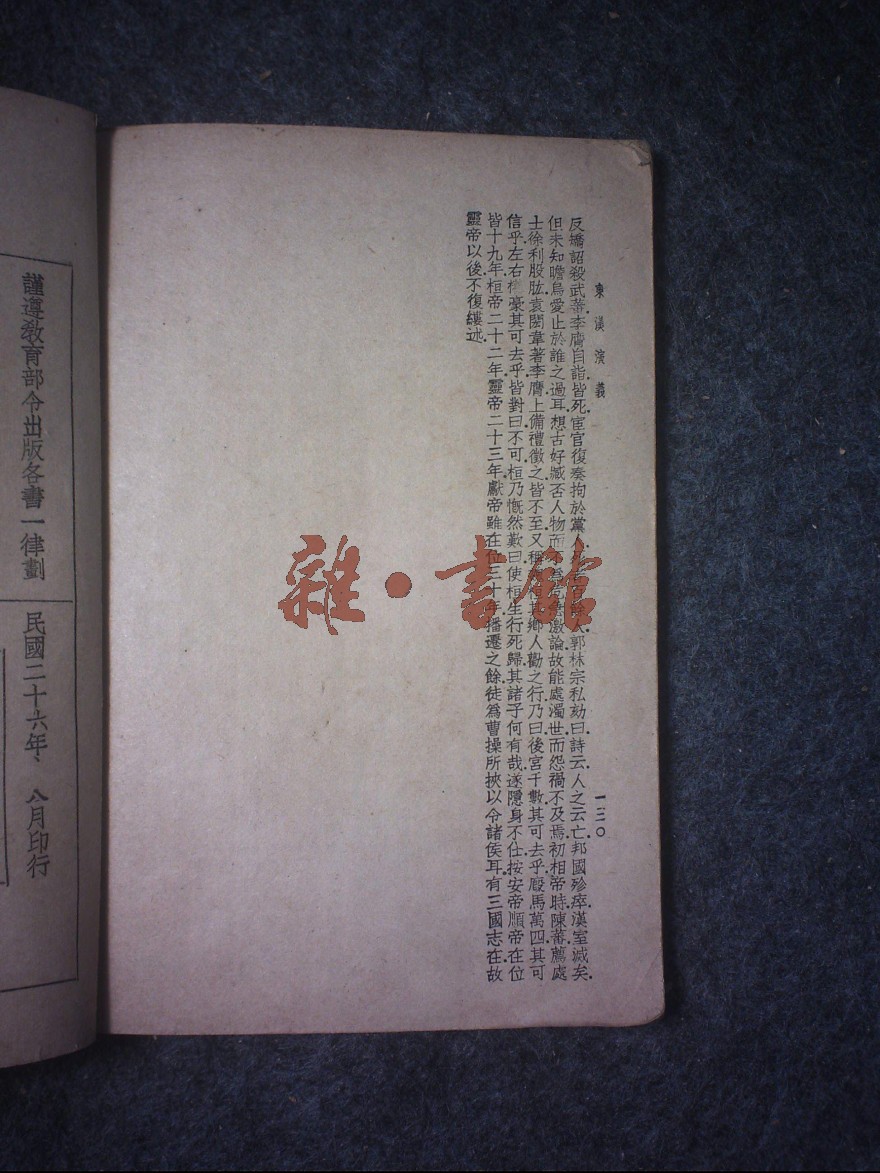 東漢演義
一三〇
反矯詔殺武蕃李膺自詣皆死宦官復奏拘於黨人死者百餘人郭林宗私劾曰詩云人之云亡邦國殄瘁漢室滅矣
但未知瞻烏爰止於誰之過耳想古好臧否人物而不為危言激論故能處濁世而怨禍不及焉初相帝時陳蕃薦處
士徐利股肱袁閎韋著李膺上備禮徵之皆不至又稱桓其鄉人勸之行乃曰後宮千數其可去乎廄馬萬四其可
信乎左右權豪其可去乎皆對曰不可桓乃慨然歎曰使桓生行死歸其諸子何有哉遂隱身不仕按安帝順帝在位
皆十九年桓帝二十二年靈帝二十三年獻帝雖在位三十年播遷之餘徒為曹操所挾以令諸侯耳有三國志在故
靈帝以後不復縷述
謹遵教育部令出版各書一律劃
民國二十六年、八月印行
雜·書館